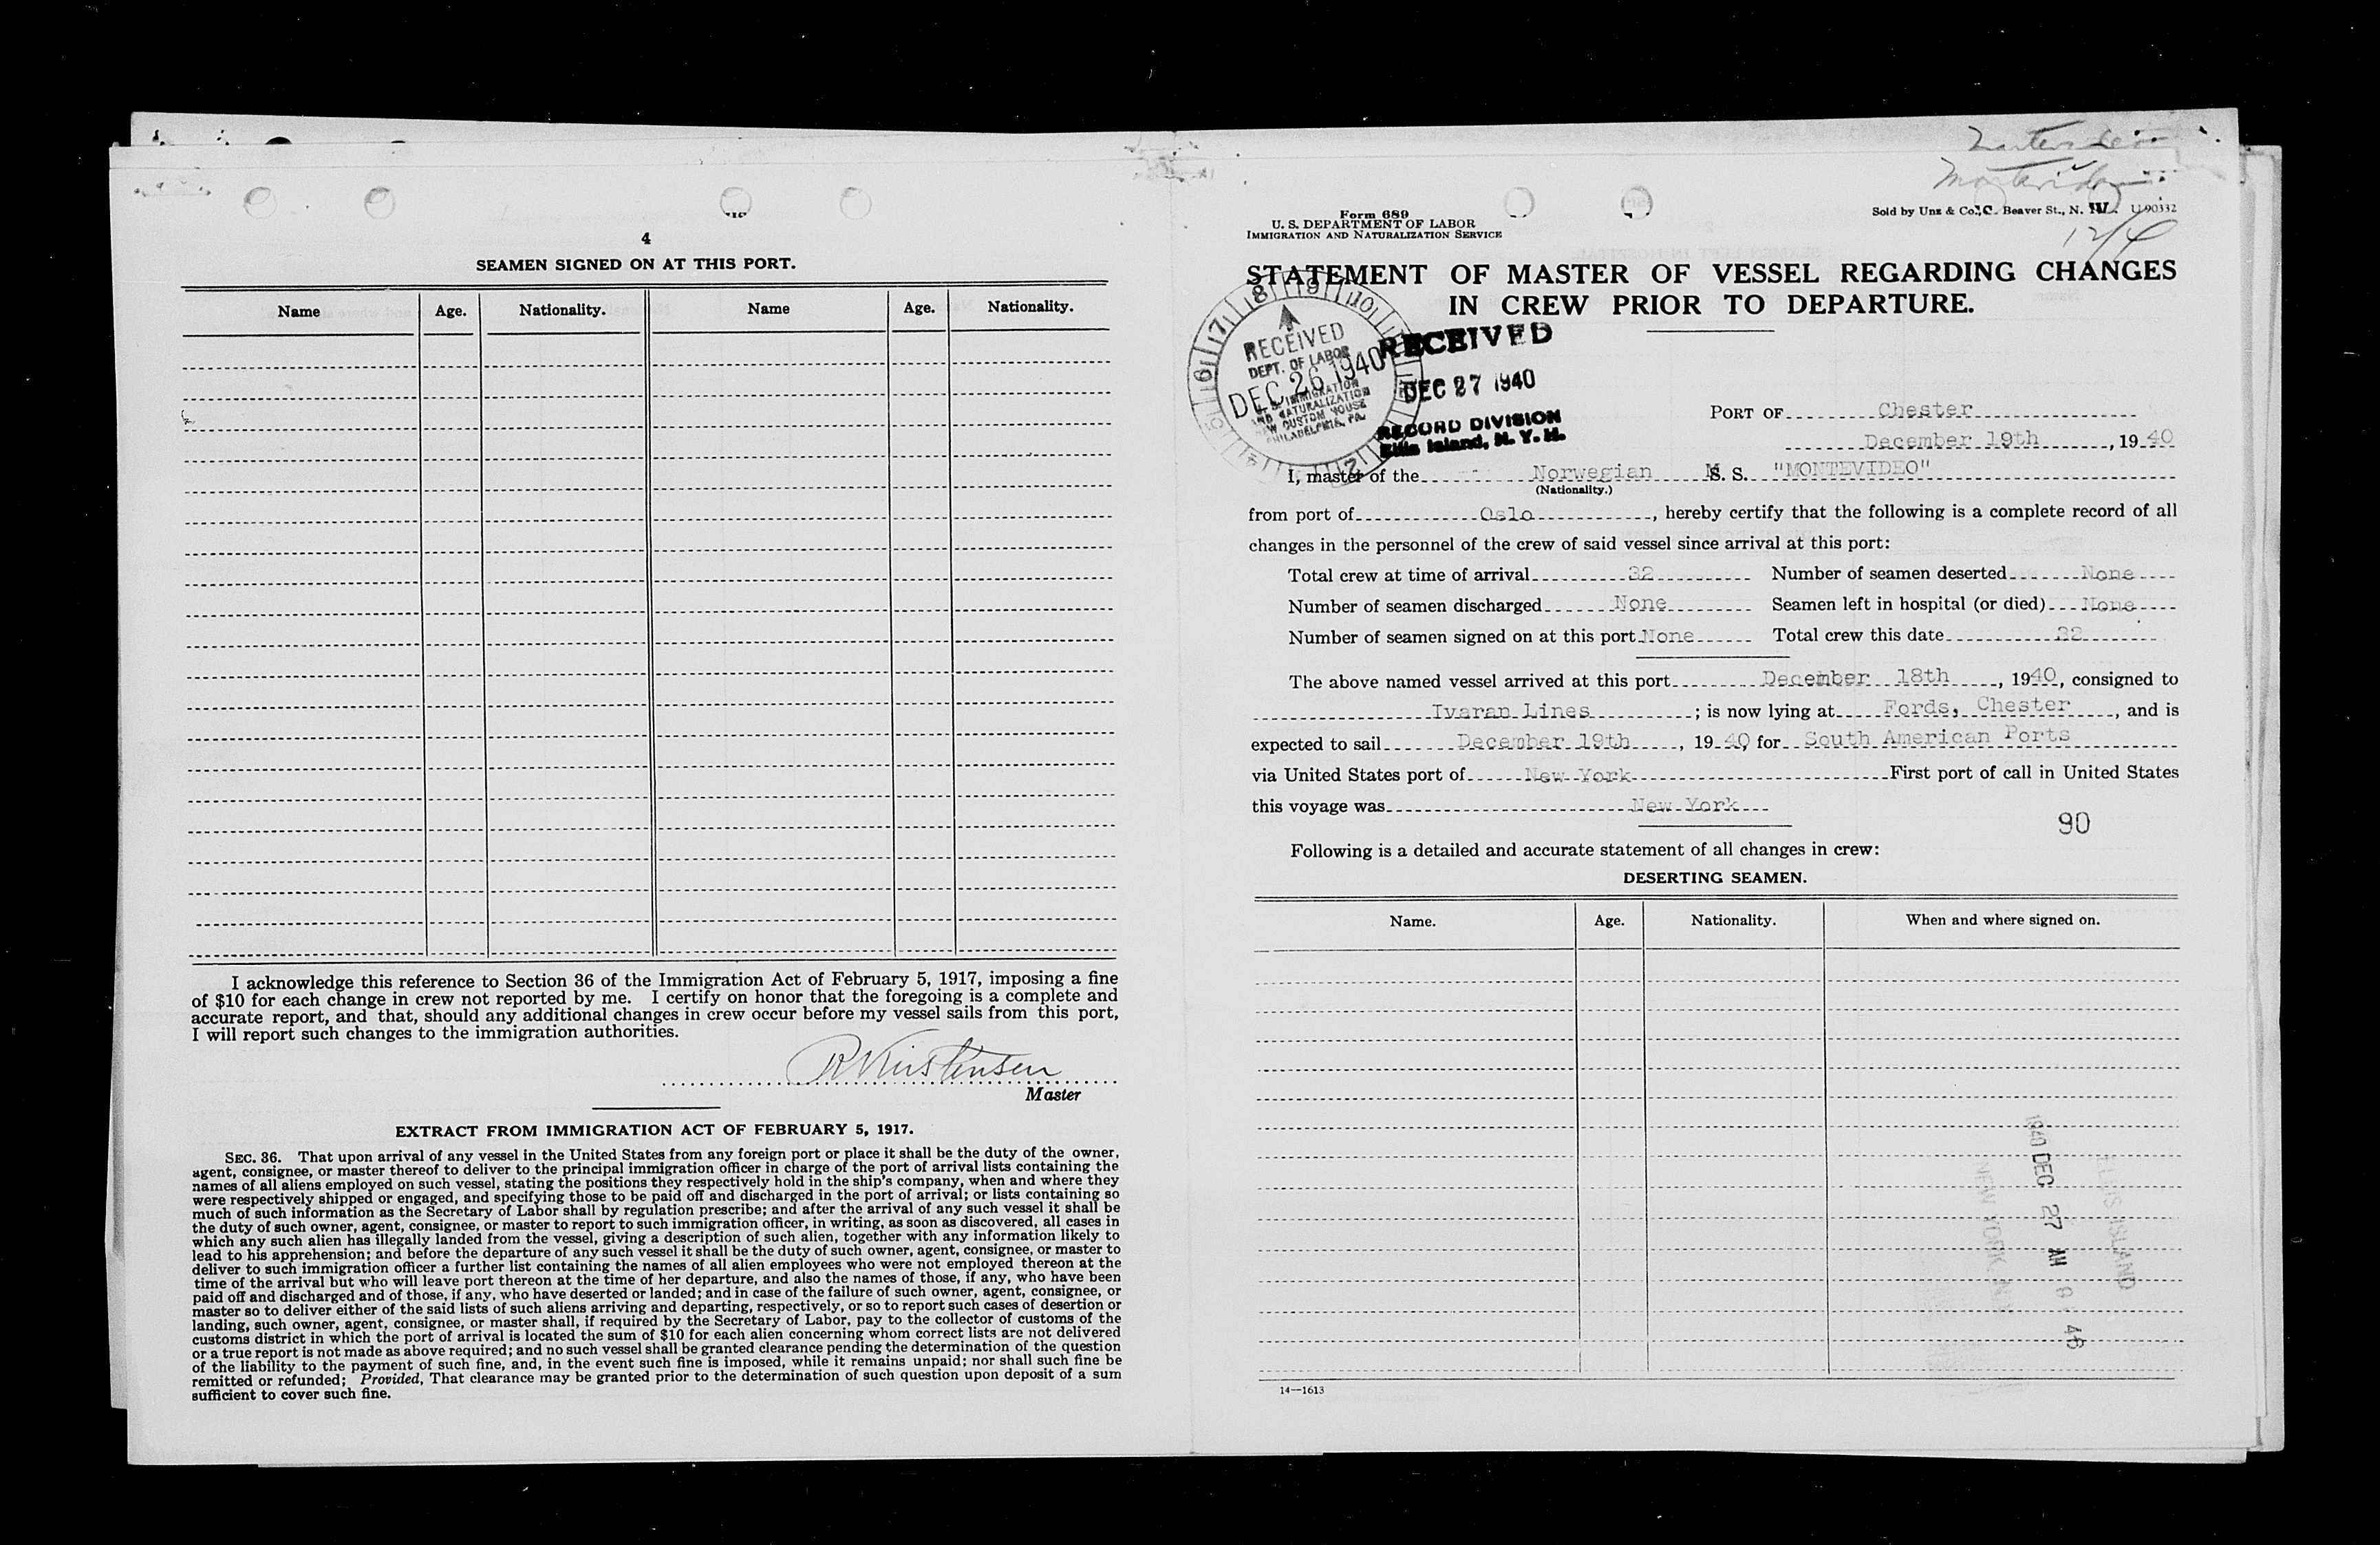 4
SEAMEN SIGNED ON AT THIS PORT.
Name Age. Nationality. Name Age. Nationality.
I acknowledge this reference to Section 36 of the Immigration Act of February 5, 1917, imposing a fine
of $10 for each change in crew not reported by me. I certify on honor that the foregoing is a complete and
accurate report, and that, should any additional changes in crew occur before my vessel sails from this port,
I will report such changes to the immigration authorities.
Master
EXTRACT FROM IMMIGRATION ACT OF FEBRUARY 5, 1917.
SEC. 36. That upon arrival of any vessel in the United States from any foreign port or place it shall be the duty of the owner,
agent, consignee, or master thereof to deliver to the principal immigration officer in charge of the port of arrival lists containing the
names of all aliens employed on such vessel, stating the positions they respectively hold in the ship's company, when and where they
were respectively shipped or engaged, and specifying those to be paid off and discharged in the port of arrival; or lists containing so
much of such information as the Secretary of Labor shall by regulation prescribe; and after the arrival of any such vessel it shall be
the duty of such owner, agent, consignee, or master to report to such immigration officer, in writing, as soon as discovered, all cases in
which any such alien has illegally landed from the vessel, giving a description of such alien, together with any information likely to
lead to his apprehension; and before the departure of any such vessel it shall be the duty of such owner, agent, consignee, or master to
deliver to such immigration officer a further list containing the names of all alien employees who were not employed thereon at the
time of the arrival but who will leave port thereon at the time of her departure, and also the names of those, if any, who have been
paid off and discharged and of those, if any, who have deserted or landed; and in case of the failure of such owner, agent, consignee, or
master so to deliver either of the said lists of such aliens arriving and departing, respectively, or so to report such cases of desertion or
landing, such owner, agent, consignee, or master shall, if required by the Secretary of Labor, pay to the collector of customs of the
customs district in which the port of arrival is located the sum of $10 for each alien concerning whom correct lists are not delivered
or a true report is not made as above required; and no such vessel shall be granted clearance pending the determination of the question
of the liability to the payment of such fine, and, in the event such fine is imposed, while it remains unpaid; nor shall such fine be
remitted or refunded; Provided, That clearance may be granted prior to the determination of such question upon deposit of a sum
sufficient to cover such fine.
Montevideo
Form 689
U. S. DEPARTMENT OF LABOR
IMMIGRATION AND NATURALIZATION SERVICE
Sold by Unz & Co., Beaver St., N. Y. U 90332
STATEMENT OF MASTER OF VESSEL REGARDING CHANGES
IN CREW PRIOR TO DEPARTURE.
RECEIVED
DEPT. OF LABOR
DEC 26 1940
IMMIGRATION
AND NATURALIZATION
NEW CUSTOM HOUSE
PHILADELPHIA, PA.
RECEIVED
DEC 27 1940
RECORD DIVISION
Ellis Island, N. Y. H.
PORT OF Chester
December 19th, 1940
I, master of the Norwegian M. S. "MONTEVIDEO"
(Nationality.)
from port of Oslo, hereby certify that the following is a complete record of all
changes in the personnel of the crew of said vessel since arrival at this port:
Total crew at time of arrival 32 Number of seamen deserted None
Number of seamen discharged None Seamen left in hospital (or died) None
Number of seamen signed on at this port None Total crew this date 32
The above named vessel arrived at this port December 18th, 1940, consigned to
Ivaran Lines; is now lying at Fords, Chester, and is
expected to sail December 19th, 1940 for South American Ports
via United States port of New York First port of call in United States
this voyage was New York
90
Following is a detailed and accurate statement of all changes in crew:
DESERTING SEAMEN.
Name. Age. Nationality. When and where signed on.
ELLIS ISLAND
1940 DEC 27 AM 8 46
NEW YORK
14—1613